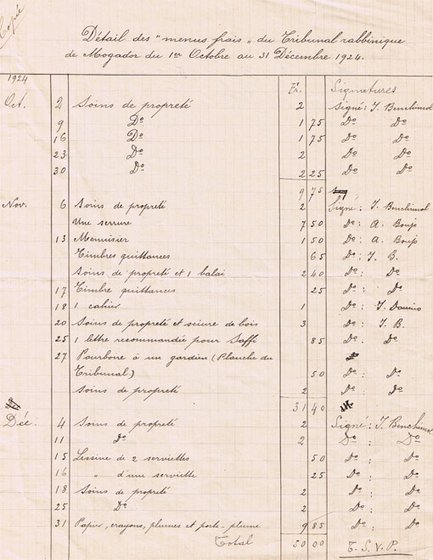 Copie
Détail des "menus frais" du Tribunal rabbinique
de Mogador du 1er Octobre au 31 Décembre 1924.
1924 Fr. Signatures
Oct. 2 Soins de propreté 2 signé: J. Benchimol
9 Do 1 75 Do Do
16 Do 1 75 Do Do
23 Do 2 Do Do
30 Do 2 25 Do Do
9 75
Nov. 6 Soins de propreté 2 Signé: J. Benchimol
Une serrure 7 50 Do: A.
13 Menuisier 1 50 Do: A.
Timbres quittances 65 Do: J. B.
Soins de propreté et 1 balai 2 40 Do: Do
17 Timbre quittances 25 Do: Do
18 1 cahier 1 Do: J.
20 Soins de propreté et sciure de bois 3 Do: J. B.
25 1 lettre recommandée pour Saffi 85 Do: Do
27 Pourboire à un gardien (Planche du
Tribunal) 50 Do: Do
Soins de propreté 2 Do: Do
31 40
Déc. 4 Soins de propreté 2 Signé: J. Benchimol
11 Do 2 Do: Do
15 Lessive de 2 serviettes 50 Do: Do
16 d'une serviette 25 Do: Do
18 Soins de propreté 2 Do: Do
25 Do 2 Do: Do
31 Papier, crayons, plumes et porte-plume 9 85 Do: Do
Total 50 00 T.S.V.P.